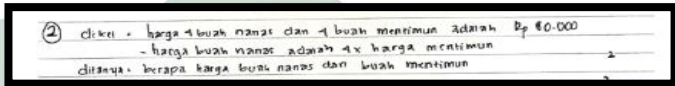 ② diket • harga 4 buah nanas dan 4 buah mentimun adalah Rp 80.000
- harga buah nanas adalah 4x harga mentimun
ditanya • berapa harga buah nanas dan buah mentimun